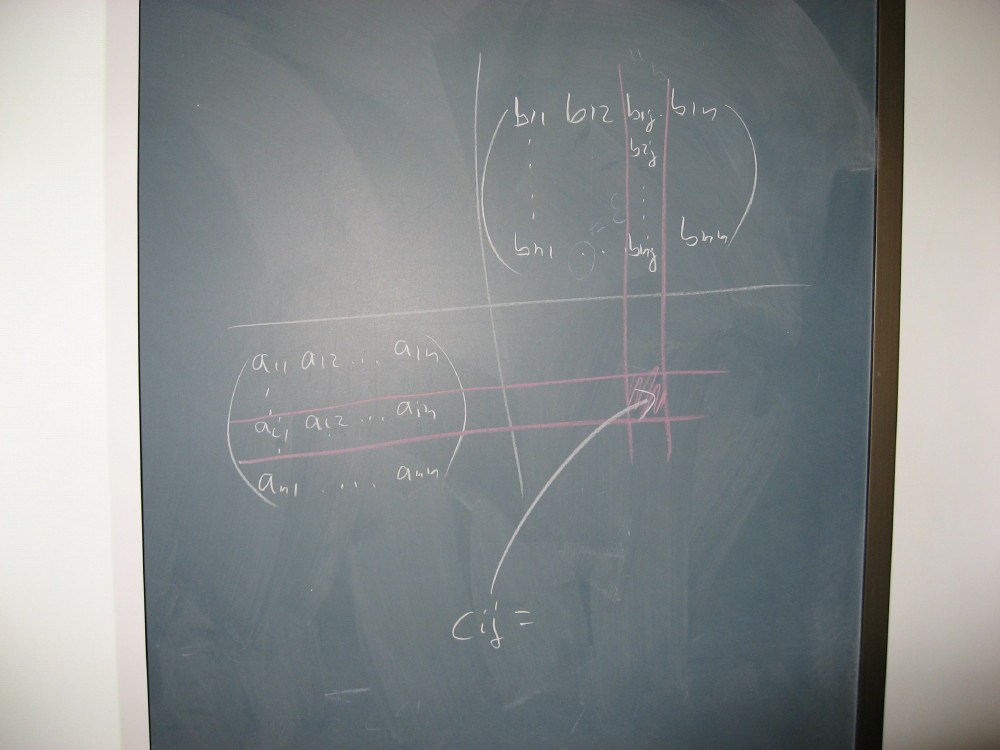 b11 b12 b1j b1n
b2j
bn1 . . bnj bnn
a11 a12 ... a1n
ai1 ai2 ... ain
an1 .... ann
cij =